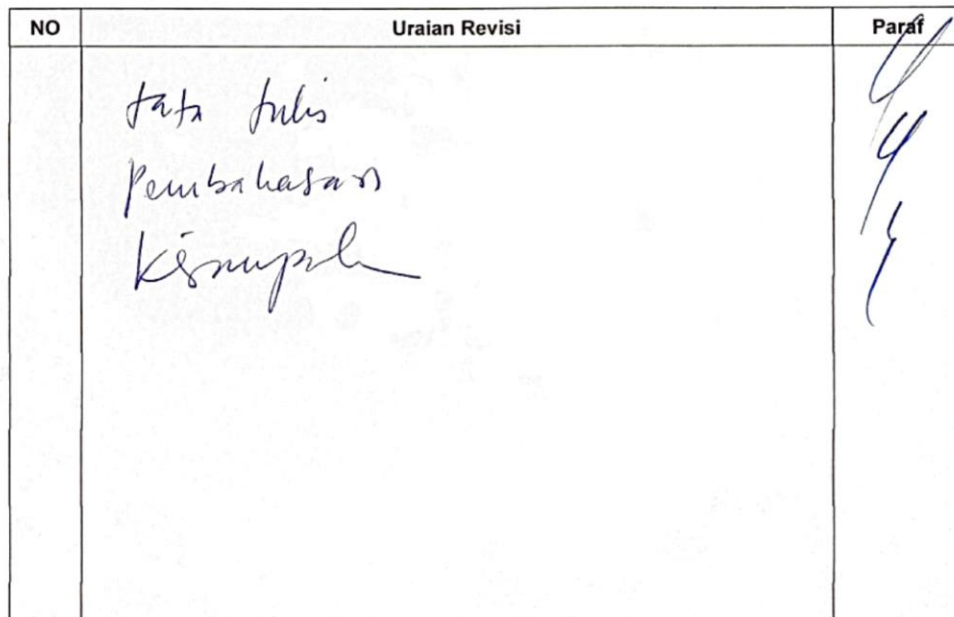 NO Uraian Revisi Paraf
tata tulis
Pembahasan
Kesimpulan